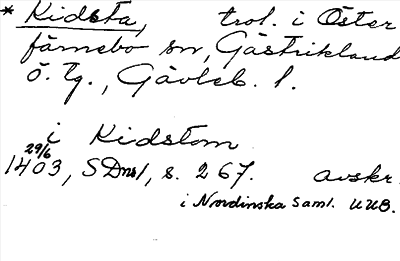 * Kidsta, trol. i Öster
färnebo sn, Gästrikland
ö. tg., Gävleb. l.
i Kidstom
29/6
1403, SDns1, s. 267. avskr.
i Nordinska saml. UUB.